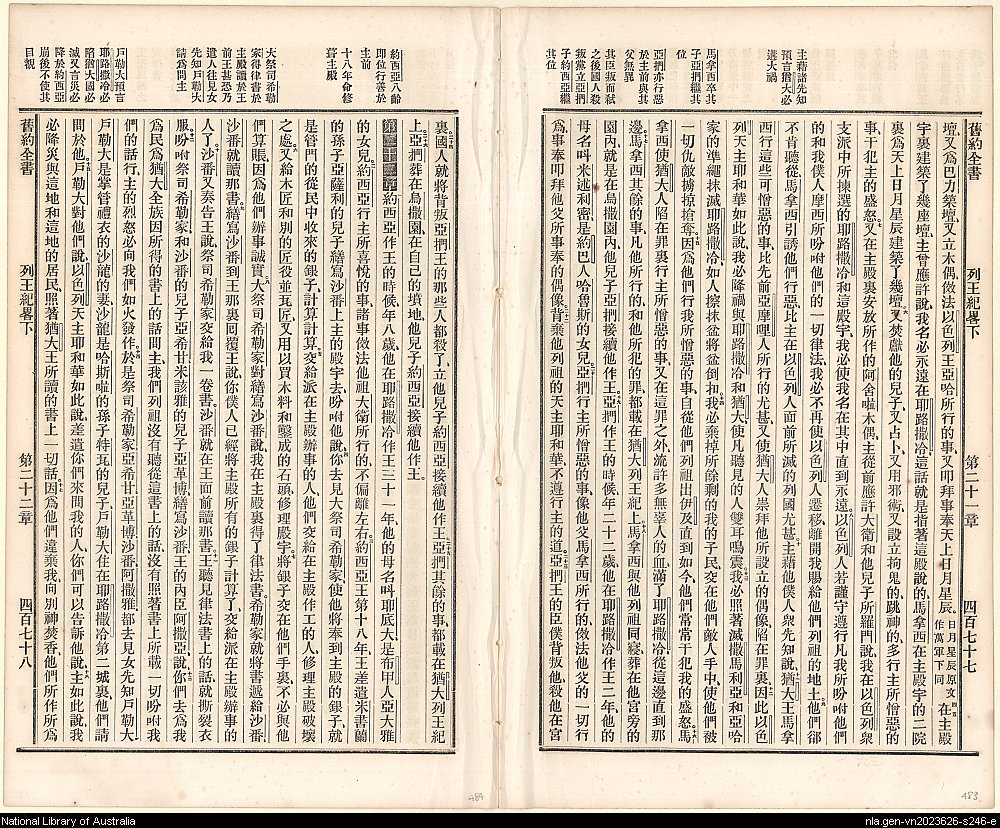 舊約全書　列王紀畧下　第二十一章　四百七十七
主藉諸先知
預言猶大必
遘大禍
馬拿西卒其
子亞捫繼其
位
亞捫亦行惡
於主前與其
父無異
其臣叛而弒
之後國人殺
叛黨立亞捫
子約西亞繼
其位
壇、又爲巴力築壇、又立木偶、倣法以色列王亞哈所行的事、又叩拜事奉天上日月星辰。日月星辰原文作萬軍下同在主殿
宇裏建築了幾座壇、主曾應許說、我名必永遠在耶路撒冷、這話就是指著這殿說的、馬拿西在主殿宇的二院
裏、爲天上日月星辰建築了幾壇、又焚獻他的兒子、又占卜、又用邪術、又設立拘鬼的、跳神的、多行主所憎惡的
事、干犯主的盛怒、又在主殿裏安放所作的阿舍囉木偶、主從前應許大衛和他兒子所羅門、說、我在以色列衆
支派中所揀選的耶路撒冷、和這殿宇、我必使我名在其中直到永遠。以色列人若謹守遵行凡我所吩咐他們
的、和我僕人摩西所吩咐他們的一切律法、我必不再使以色列人遷移、離開我賜給他們列祖的地土、他們卻
不肯聽從、馬拿西引誘他們行惡、比主在以色列人面前所滅的列國尤甚、主藉他僕人衆先知說、猶大王馬拿
西行這些可憎惡的事、比先前亞摩哩人所行的尤甚、又使猶大人崇拜他所設立的偶像、陷在罪裏、因此以色
列天主耶和華如此說、我必降禍與耶路撒冷和猶大、使凡聽見的人雙耳鳴震、我必照著滅撒馬利亞和亞哈
家的準繩抹滅耶路撒冷、如人擦抹盆將盆倒扣、我必棄掉所餘剩的我的子民、交在他們敵人手中、使他們被
一切仇敵擄掠搶奪、因爲他們行我所憎惡的事、自從他們列祖出伊及直到如今、他們常常干犯我的盛怒、馬
拿西使猶大人陷在罪裏、行主所憎惡的事、又在這罪之外、流許多無辜人的血、滿了耶路撒冷、從這邊直到那
邊、馬拿西其餘的事、凡他所行的、和他所犯的罪、都載在猶大列王紀上、馬拿西與他列祖同寢、葬在他宮旁的
園內、就是在烏撒園內、他兒子亞捫接續他作王。亞捫作王的時候、年二十二歲、他在耶路撒冷作王二年、他的
母名叫米述利密、是約巴人哈魯斯的女兒、亞捫行主所憎惡的事、像他父馬拿西所行的、倣法他父的一切行
爲、事奉叩拜他父所事奉的偶像、背棄他列祖的天主耶和華、不遵行主的道。亞捫王的臣僕背叛他、殺他在宮
約西亞八齡
即位行善於
主前
十八年命修
葺主殿
大祭司希勒
家得律書於
主殿讀於王
前王甚恐乃
遣人往見女
先知戶勒大
請爲問主
戶勒大預言
耶路撒冷必
陷猶大國必
滅又言災必
降於約西亞
崩後不使其
目覩
裏、國人就將背叛亞捫王的那些人都殺了、立他兒子約西亞接續他作王、亞捫其餘的事、都載在猶大列王紀
上、亞捫葬在烏撒園、在自己的墳地、他兒子約西亞接續他作王。
第二十二章 約西亞作王的時候、年八歲、他在耶路撒冷作王三十一年、他的母名叫耶底大、是布甲人亞大雅
的女兒、約西亞行主所喜悅的事、諸事倣法他祖大衛所行的、不偏離左右、約西亞王第十八年、王差遣米書蘭
的孫子亞薩利的兒子繕寫沙番、上主的殿宇去、吩咐他說、你去見大祭司希勒家、使他將奉到主殿的銀子、就
是管門的從民中收來的銀子、計算計算、交給派在主殿辦事的人、他們交給在主殿作工的人、修理主殿破壞
之處、又給木匠和別的匠役並瓦匠、又用以買木料和鑿成的石頭、修理殿宇、將銀子交在他們手裏、不必與他
們算賬、因爲他們辦事誠實、大祭司希勒家對繕寫沙番說、我在主殿裏得了律法書、希勒家就將書遞給沙番、
沙番就讀那書、繕寫沙番到王那裏囘覆王說、你僕人已經將主殿所有的銀子計算了、交給派在主殿辦事的
人了、沙番又奏告王說、祭司希勒家交給我一卷書、沙番就在王面前讀那書、王聽見律法書上的話、就撕裂衣
服、吩咐祭司希勒家和沙番的兒子亞希甘、米該雅的兒子亞革博、繕寫沙番、王的內臣阿撒亞、說、你們去爲我
爲民爲猶大全族、因所得的書上的話問主、我們列祖沒有聽從這書上的話、沒有照著書上所載一切吩咐我
們的話行、主的烈怒必向我們如火發作、於是祭司希勒家、亞希甘、亞革博、沙番、阿撒雅、都去見女先知戶勒大、
戶勒大是掌管禮衣的沙龍的妻、沙龍是哈斯囉的孫子特瓦的兒子、戶勒大住在耶路撒冷第二城裏、他們請
問於他、戶勒大對他們說、以色列天主耶和華如此說、差遣你們來問我的人、你們可以告訴他說、主如此說、我
必降災與這地和這地的居民、照著猶大王所讀的書上一切話、因爲他們違棄我、向別神焚香、他們所作所爲
舊約全書　列王紀畧下　第二十二章　四百七十八
484
483
National Library of Australia
nla.gen-vn2023626-s246-e